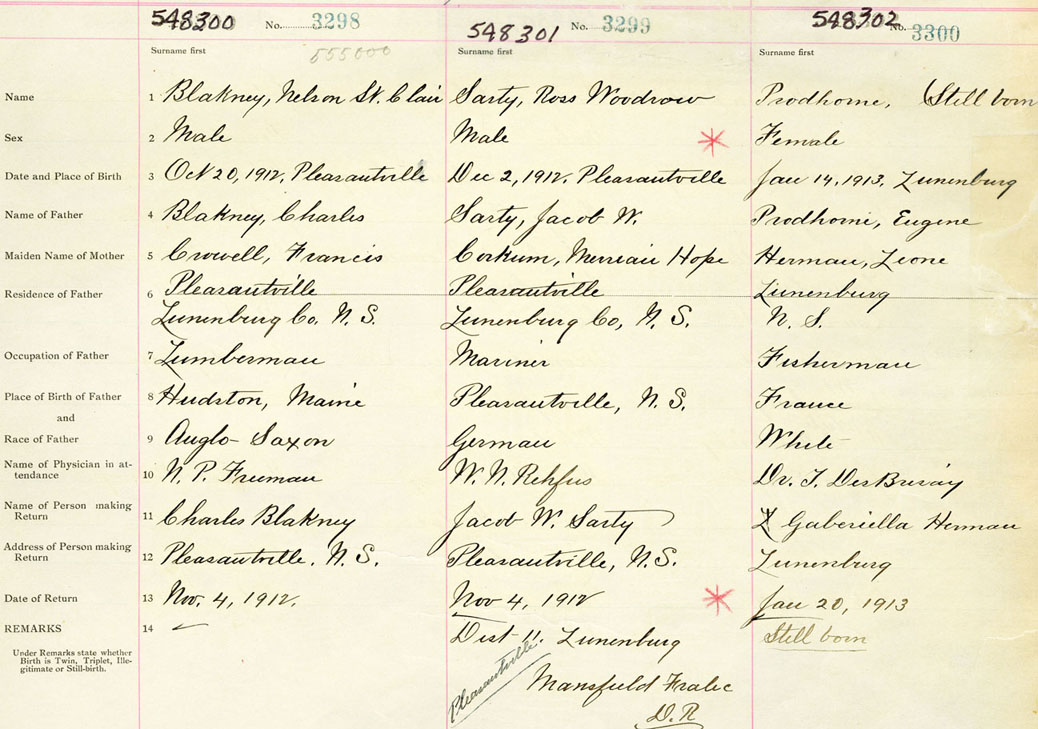 548300 No. 3298 548301 No. 3299 548302 No. 3300
Surname first 555000 Surname first Surname first
Name 1 Blakney, Nelson St. Clair Sarty, Ross Woodrow Prodhome, (Still born
Sex 2 Male Male * Female
Date and Place of Birth 3 Oct 20, 1912, Pleasantville Dec 2, 1912, Pleasantville Jan 14, 1913, Lunenburg
Name of Father 4 Blakney, Charles Sarty, Jacob W. Prodhome, Eugene
Maiden Name of Mother 5 Crowell, Francis Corkum, Hope Herman, Leone
Residence of Father 6 Pleasantville Pleasantville Lunenburg
Lunenburg Co. N. S. Lunenburg Co, N. S. N. S.
Occupation of Father 7 Lumberman Mariner Fisherman
Place of Birth of Father 8 Hudston, Maine Pleasantville, N. S. France
and
Race of Father 9 Anglo-Saxon German White
Name of Physician in at-
tendance 10 N. P. Freeman W. N. Rehfus Dr. T. DesBrisay
Name of Person making
Return 11 Charles Blakney Jacob W. Sarty X Gaberiella Herman
Address of Person making
Return 12 Pleasantville. N. S. Pleasantville, N. S. Lunenburg
Date of Return 13 Nov. 4, 1912. Nov 4, 1912 * Jan 20, 1913
REMARKS 14 Dist 11. Lunenburg Still born
Under Remarks state whether
Birth is Twin, Triplet, Ille-
gitimate or Still-birth.
Pleasantville
Mansfield Fralic
D. R